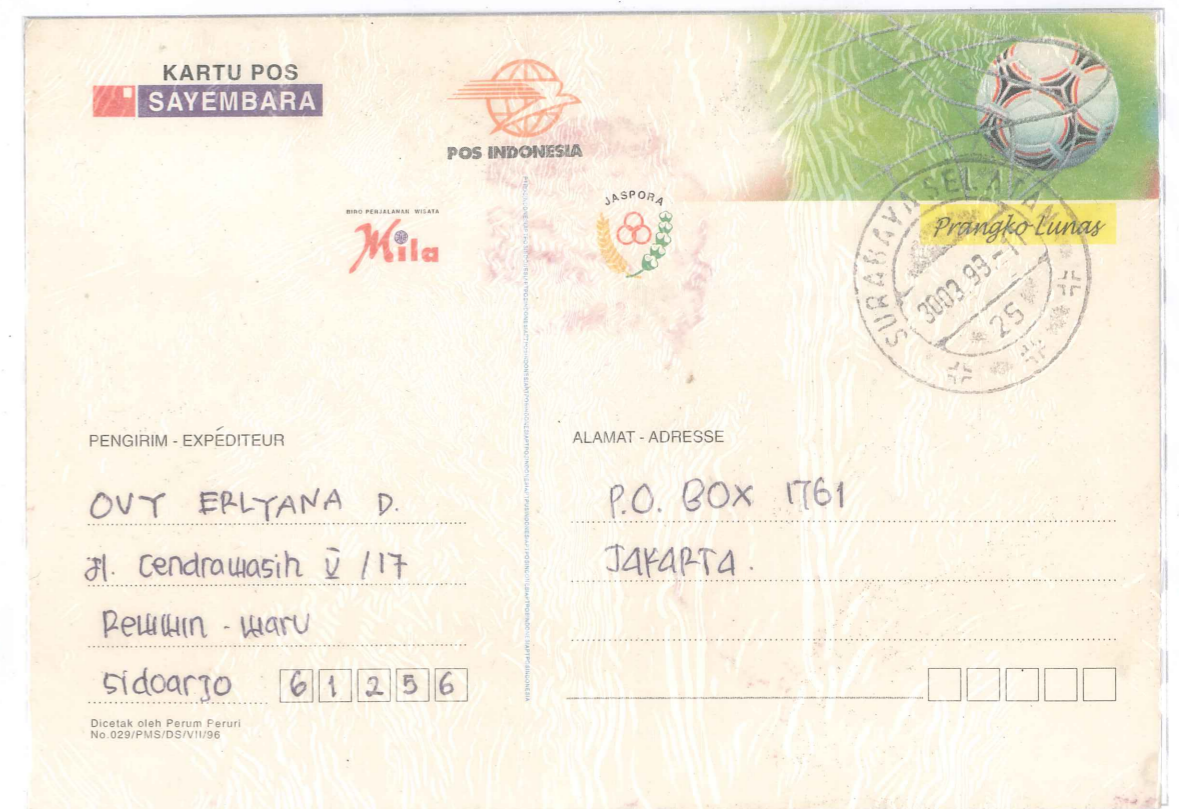 KARTU POS
SAYEMBARA
POS INDONESIA
BIRO PERJALANAN WISATA
Mila
JASPORA
Prangko Lunas
SURABAYA SELATAN
25
PENGIRIM - EXPÉDITEUR
OVY ERLYANA D.
Jl. Cendrawasih V / 17
Rewwin - Waru
Sidoarjo 61256
Dicetak oleh Perum Peruri
No.029/PMS/DS/VII/96
ALAMAT - ADRESSE
P.O. BOX 1761
JAKARTA.